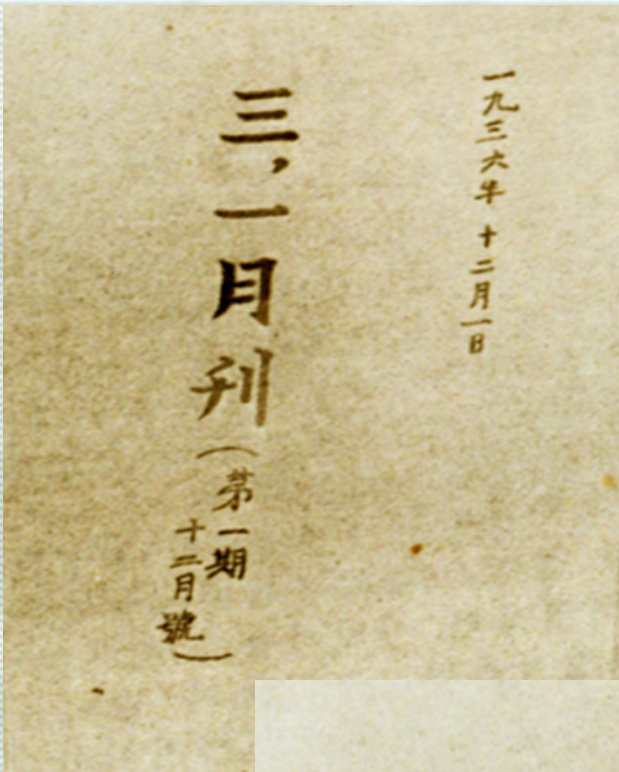 一九三六年 十二月一日
三,一月刊
(第一期
十二月號)